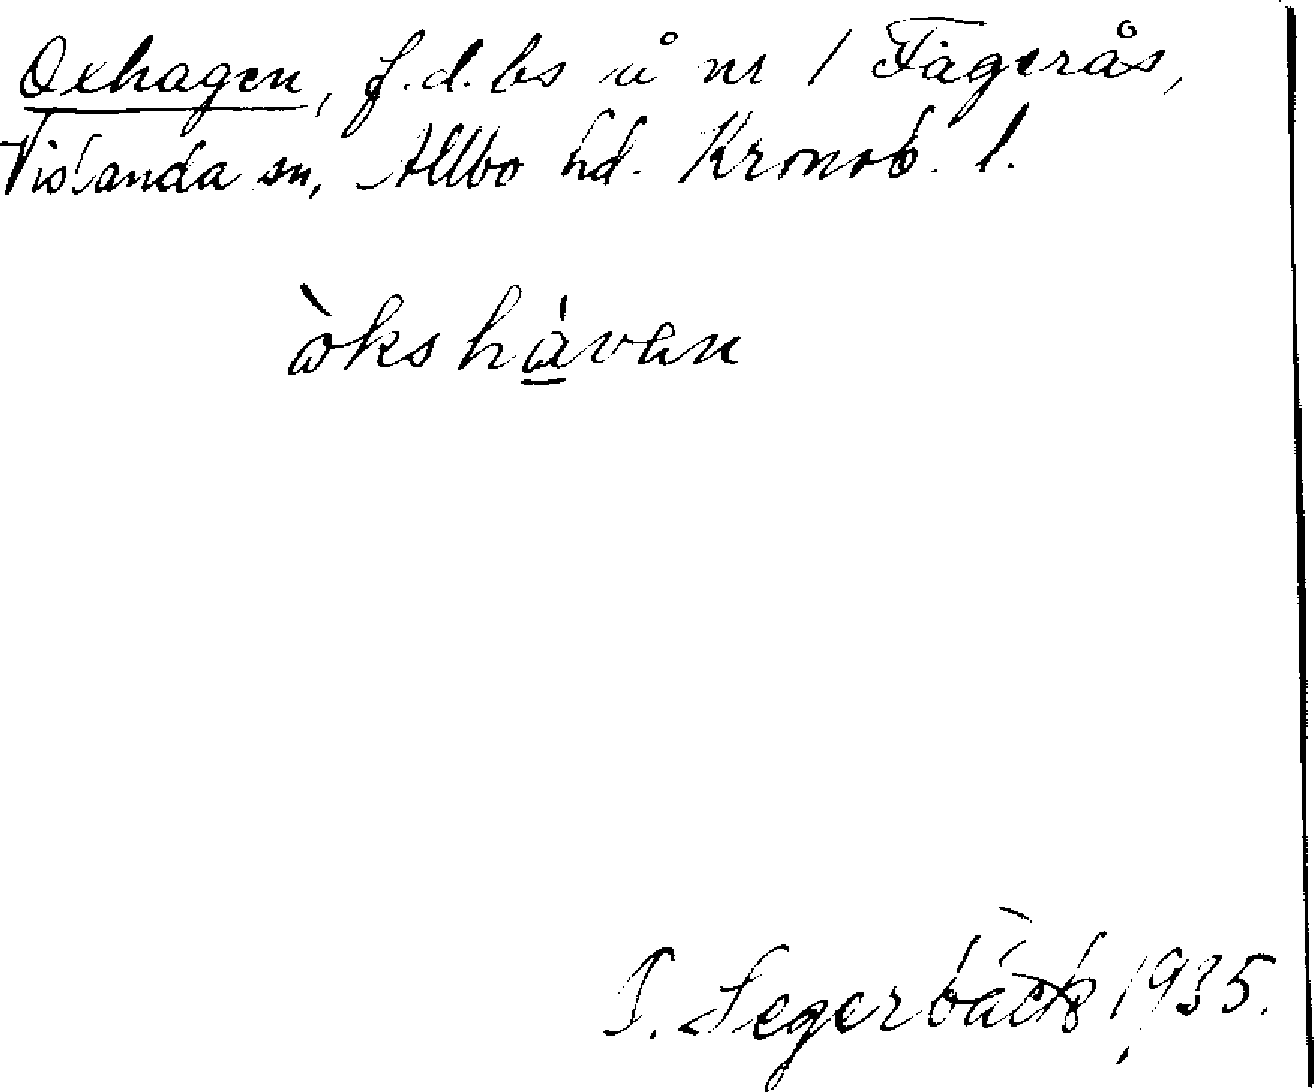 Oxhagen, f.d. bs å nr 1 Fagerås,
Vislanda sn, Allbo hd. Kronob. l.
òkshávan
I. Segerbäck 1935.